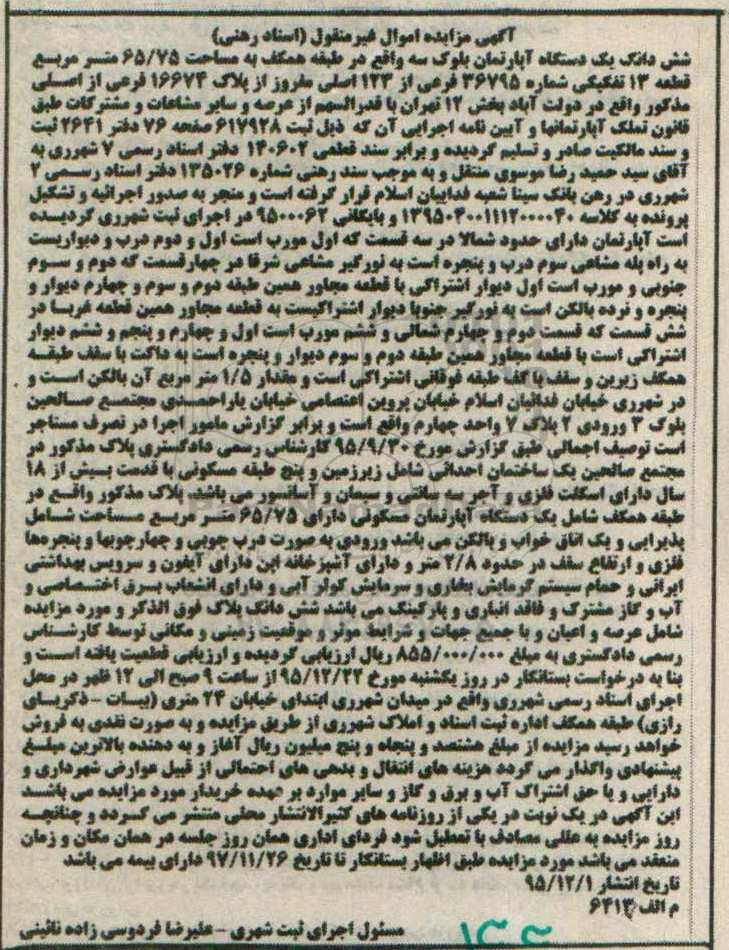 آگهی مزایده اموال غیرمنقول (اسناد رهنی)
شش دانگ یک دستگاه آپارتمان بلوک سه واقع در طبقه همکف به مساحت ۶۵/۷۵ متر مربع
قطعه ۱۳ تفکیکی شماره ۳۶۷۹۵ فرعی از ۱۲۳ اصلی مفروز از پلاک ۱۶۶۷۴ فرعی از اصلی
مذکور واقع در دولت آباد بخش ۱۲ تهران با قدرالسهم از عرصه و سایر مشاعات و مشترکات طبق
قانون تملک آپارتمانها و آیین نامه اجرایی آن که ذیل ثبت ۶۱۷۹۲۸ صفحه ۷۶ دفتر ۲۶۴۱ ثبت
و سند مالکیت صادر و تسلیم گردیده و برابر سند قطعی ۱۴۰۶۰۲ دفتر اسناد رسمی ۷ شهرری به
آقای سید حمید رضا موسوی منتقل و به موجب سند رهنی شماره ۱۳۵۰۲۶ دفتر اسناد رسمی ۲
شهرری در رهن بانک سینا شعبه فداییان اسلام قرار گرفته است و منجر به صدور اجرائیه و تشکیل
پرونده به کلاسه ۱۳۹۵۰۴۰۰۱۱۱۲۰۰۰۰۴۰ و بایگانی ۹۵۰۰۰۶۲ در اجرای ثبت شهرری گردیده
است آپارتمان دارای حدود شمالا در سه قسمت که اول مورب است اول و دوم درب و دیواریست
به راه پله مشاعی سوم درب و پنجره است به نورگیر مشاعی شرقا در چهارقسمت که دوم و سوم
جنوبی و مورب است اول دیوار اشتراکی با قطعه مجاور همین طبقه دوم و سوم و چهارم دیوار و
پنجره و نرده بالکن است به نورگیر جنوبا دیوار اشتراکیست به قطعه مجاور همین قطعه غربا در
شش قسمت که قسمت دوم و چهارم شمالی و ششم مورب است اول و چهارم و پنجم و ششم دیوار
اشتراکی است با قطعه مجاور همین طبقه دوم و سوم دیوار و پنجره است به داکت با سقف طبقه
همکف زیرین و سقف با کف طبقه فوقانی اشتراکی است و مقدار ۱/۵ متر مربع آن بالکن است و
در شهرری خیابان فدائیان اسلام خیابان پروین اعتصامی خیابان یاراحمدی مجتمع صالحین
بلوک ۳ ورودی ۲ پلاک ۷ واحد چهارم واقع است و برابر گزارش مامور اجرا در تصرف مستاجر
است توصیف اجمالی طبق گزارش مورخ ۹۵/۹/۳۰ کارشناس رسمی دادگستری پلاک مذکور در
مجتمع صالحین یک ساختمان احداثی شامل زیرزمین و پنج طبقه مسکونی با قدمت بیش از ۱۸
سال دارای اسکلت فلزی و آجر سه سانتی و سیمان و آسانسور می باشد. پلاک مذکور واقع در
طبقه همکف شامل یک دستگاه آپارتمان مسکونی دارای ۶۵/۷۵ متر مربع مساحت شامل
پذیرایی و یک اتاق خواب و بالکن می باشد ورودی به صورت درب چوبی و چهارچوبها و پنجره‌ها
فلزی و ارتفاع سقف در حدود ۲/۸ متر و دارای آشپزخانه اپن دارای آیفون و سرویس بهداشتی
ایرانی و حمام سیستم گرمایش بخاری و سرمایش کولر آبی و دارای انشعاب برق اختصاصی و
آب و گاز مشترک و فاقد انباری و پارکینگ می باشد شش دانگ پلاک فوق الذکر و مورد مزایده
شامل عرصه و اعیان و با جمیع جهات و شرایط موثر و موقعیت زمینی و مکانی توسط کارشناس
رسمی دادگستری به مبلغ ۸۵۵/۰۰۰/۰۰۰ ریال ارزیابی گردیده و ارزیابی قطعیت یافته است و
بنا به درخواست بستانکار در روز یکشنبه مورخ ۹۵/۱۲/۲۲ از ساعت ۹ صبح الی ۱۲ ظهر در محل
اجرای اسناد رسمی شهرری واقع در میدان شهرری ابتدای خیابان ۲۴ متری (بیسات - ذکریای
رازی) طبقه همکف اداره ثبت اسناد و املاک شهرری از طریق مزایده و به صورت نقدی به فروش
خواهد رسید مزایده از مبلغ هشتصد و پنجاه و پنج میلیون ریال آغاز و به دهنده بالاترین مبلغ
پیشنهادی واگذار می گردد هزینه های انتقال و بدهی های احتمالی از قبیل عوارض شهرداری و
دارایی و یا حق اشتراک آب و برق و گاز و سایر موارد بر عهده خریدار مورد مزایده می باشد
این آگهی در یک نوبت در یکی از روزنامه های کثیرالانتشار محلی منتشر می گردد و چنانچه
روز مزایده به عللی مصادف با تعطیل شود فردای اداری همان روز جلسه در همان مکان و زمان
منعقد می باشد مورد مزایده طبق اظهار بستانکار تا تاریخ ۹۷/۱۱/۲۶ دارای بیمه می باشد
تاریخ انتشار ۹۵/۱۲/۱
م الف ۶۴۱۳
مسئول اجرای ثبت شهری - علیرضا فردوسی زاده نائینی